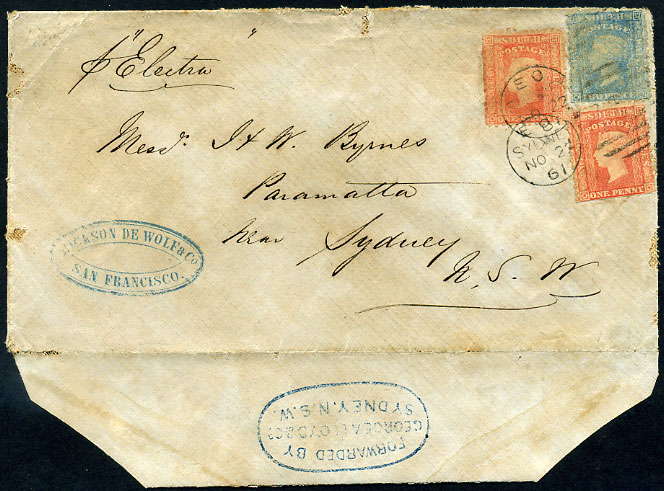 p "Electra"
Messrs. J & W. Byrnes
Paramatta
near Sydney
N. S. W
SOUTH
POSTAGE
SOUTH
POSTAGE
SOUTH
POSTAGE
ONE PENNY
SYDNEY
NO 22
61
JACKSON DE WOLF & Co
SAN FRANCISCO.
FORWARDED BY
GEORGE A LLOYD & Co
SYDNEY. N. S. W.